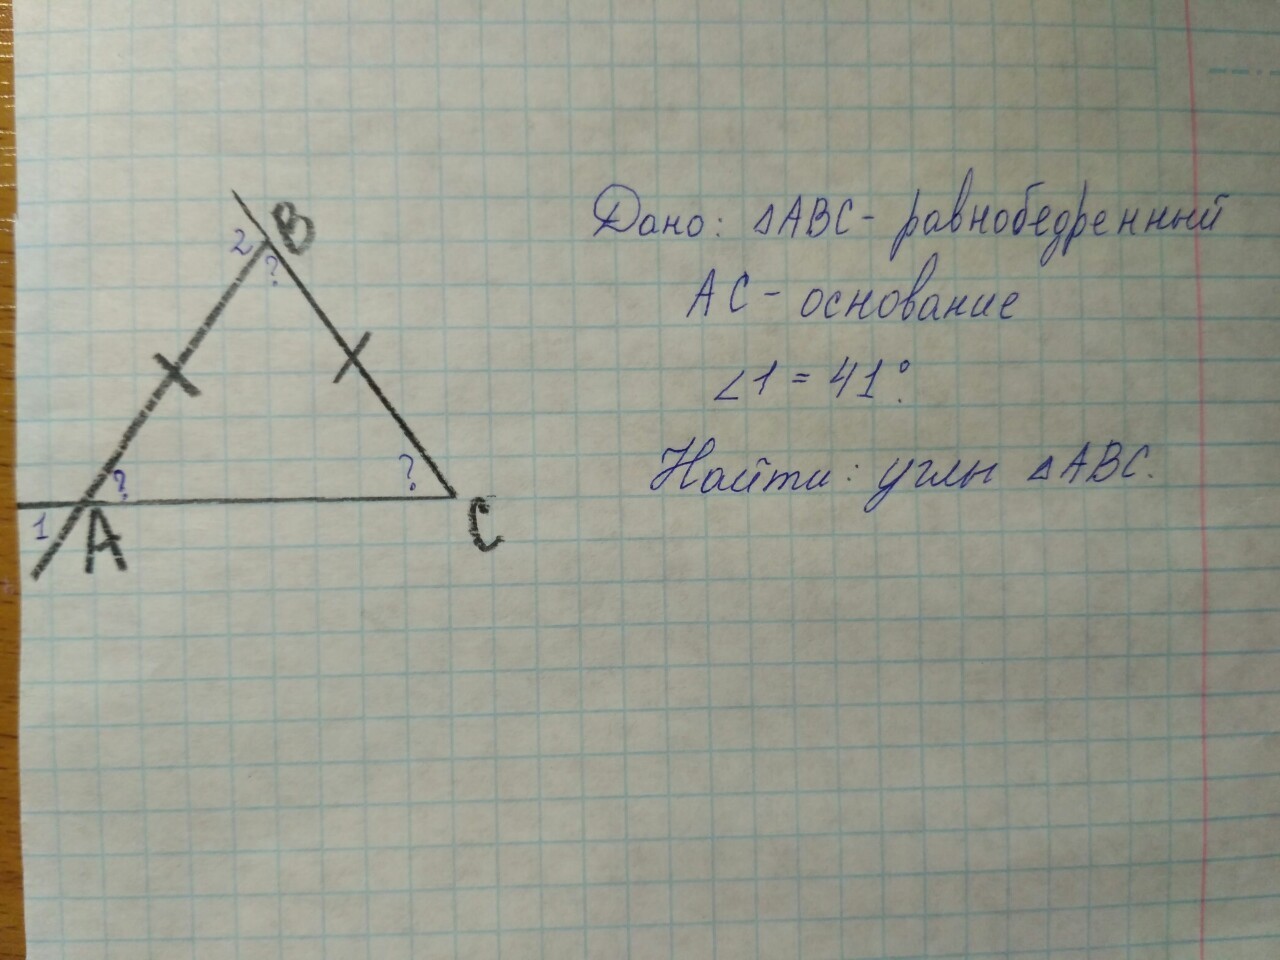 B
2
?
?
?
1
A
C
Дано: △ABC - равнобедренный
AC - основание
∠1 = 41°.
Найти: углы △ABC.